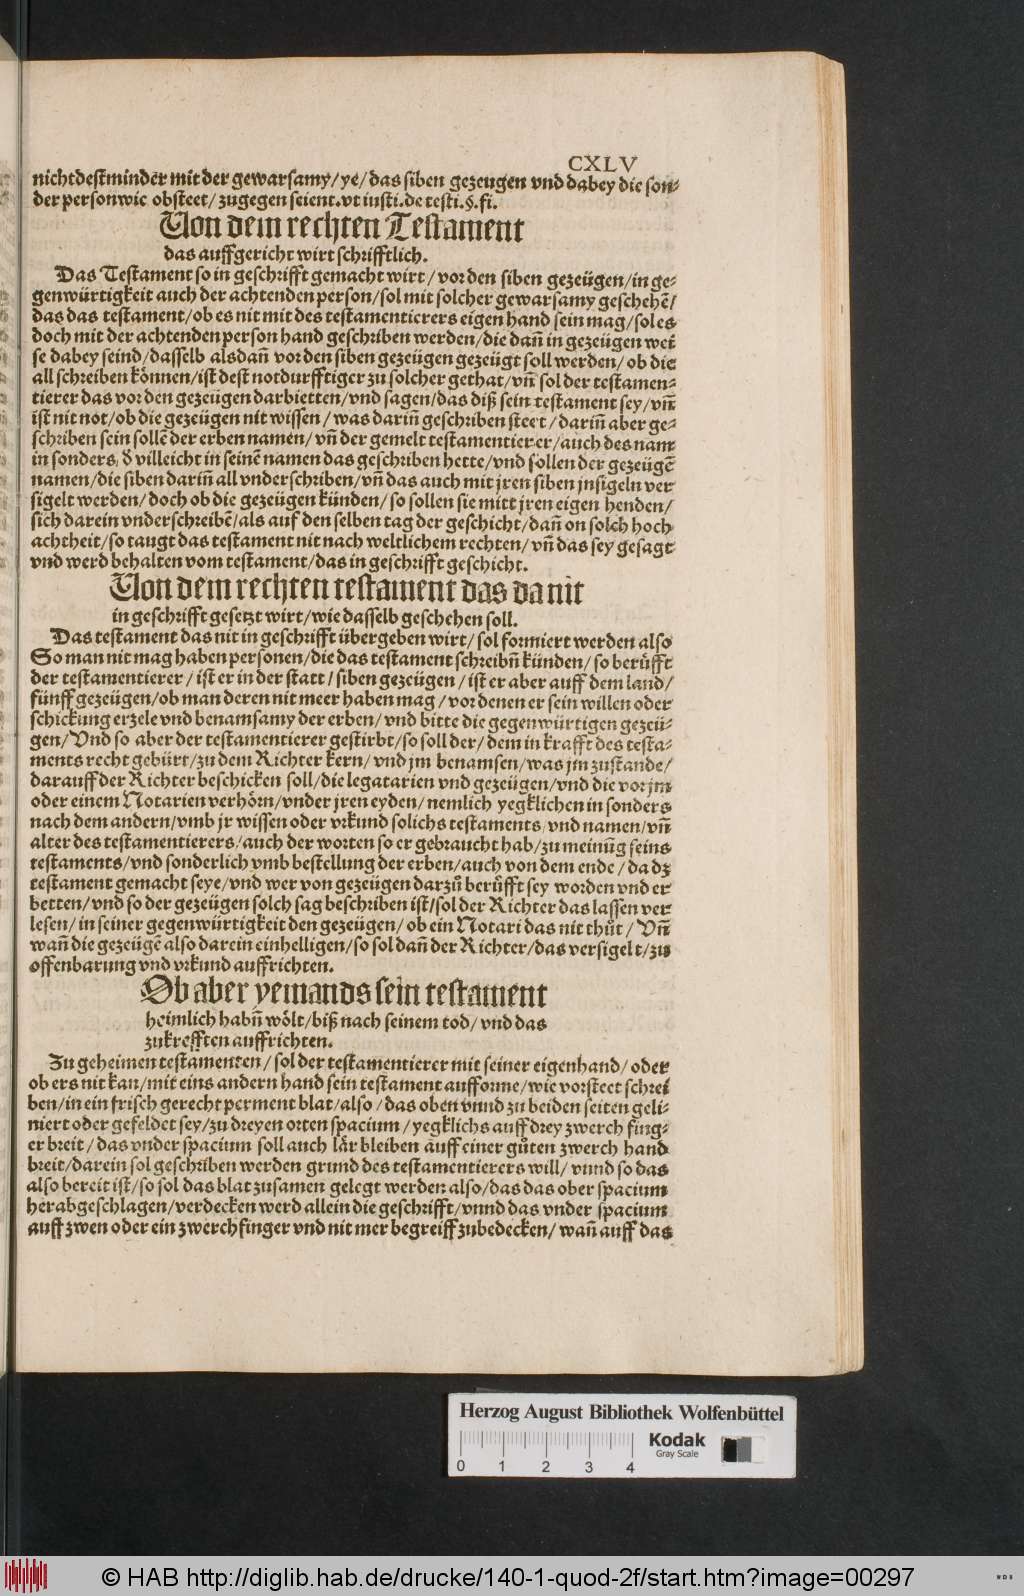 CXLV
nichtdestminder mit der gewarsamy/ ye/ das siben gezeugen vnd dabey die son⸗
der person wie obsteet/ zugegen seient. vt insti. de testi. §. fi.
Von dem rechten Testament
das auffgericht wirt schrifftlich.
Das Testament so in geschrifft gemacht wirt/ vor den siben gezeügen/ in ge⸗
genwürtigkeit auch der achtenden person/ sol mit solcher gewarsamy geschehē/
das das testament/ ob es nit mit des testamentierers eigen hand sein mag/ sol es
doch mit der achtenden person hand geschriben werden/ die dañ in gezeügen wei
se dabey seind/ dasselb alsdañ vor den siben gezeügen gezeügt soll werden/ ob die
all schreiben können/ ist dest notdurfftiger zu solcher gethat/ vñ sol der testamen⸗
tierer das vor den gezeügen darbietten/ vnd sagen/ das diß sein testament sey/ vñ
ist nit not/ ob die gezeügen nit wissen/ was dariñ geschriben steet/ dariñ aber ge⸗
schriben sein sollē der erben namen/ vñ der gemelt testamentierer/ auch des nam
in sonders/ d̄ villeicht in seinē namen das geschriben hette/ vnd sollen der gezeügē
namen/ die siben dariñ all vnderschriben/ vñ das auch mit jren siben jnsigeln ver
sigelt werden/ doch ob die gezeügen künden/ so sollen sie mitt jren eigen henden/
sich darein vnderschreibē/ als auf den selben tag der geschicht/ dañ on solch hoch
achtheit/ so taugt das testament nit nach weltlichem rechten/ vñ das sey gesagt
vnd werd behalten vom testament/ das in geschrifft geschicht.
Von dem rechten testament das da nit
in geschrifft gesetzt wirt/ wie dasselb geschehen soll.
Das testament das nit in geschrifft übergeben wirt/ sol formiert werden also
So man nit mag haben personen/ die das testament schreibñ künden/ so berüfft
der testamentierer/ ist er in der statt/ siben gezeügen/ ist er aber auff dem land/
fünff gezeügen/ ob man deren nit meer haben mag/ vor denen er sein willen oder
schickung erzele vnd benamsamy der erben/ vnd bitte die gegenwürtigen gezeü⸗
gen/ Vnd so aber der testamentierer gestirbt/ so soll der/ dem in krafft des testa⸗
ments recht gebürt/ zu dem Richter kern/ vnd jm benamsen/ was jm zustande/
darauff der Richter beschicken soll/ die legatarien vnd gezeügen/ vnd die vor jm
oder einem Notarien verhörn/ vnder jren eyden/ nemlich yegklichen in sonders
nach dem andern/ vmb jr wissen oder vrkund solichs testaments/ vnd namen/ vñ
alter des testamentierers/ auch der worten so er gebraucht hab/ zu meinūg seins
testaments/ vnd sonderlich vmb bestellung der erben/ auch von dem ende/ da dz
testament gemacht seye/ vnd wer von gezeügen darzů berüfft sey worden vnd er
betten/ vnd so der gezeügen solch sag beschriben ist/ sol der Richter das lassen ver
lesen/ in seiner gegenwürtigkeit den gezeügen/ ob ein Notari das nit thüt/ Vñ
wañ die gezeügē also darein einhelligen/ so sol dañ der Richter/ das versigelt/ zu
offenbarung vnd vrkund auffrichten.
Ob aber yemands sein testament
heimlich habñ wölt/ biß nach seinem tod/ vnd das
zukrefften auffrichten.
Zu geheimen testamenten/ sol der testamentierer mit seiner eigenhand/ oder
ob ers nit kan/ mit eins andern hand sein testament aufforme/ wie vorsteet schrei
ben/ in ein frisch gerecht perment blat/ also/ das oben vnnd zu beiden seiten geli⸗
niert oder gefeldet sey/ zu dreyen orten spacium/ yegklichs auff drey zwerch fing⸗
er breit/ das vnder spacium soll auch lär bleiben auff einer gůten zwerch hand
breit/ darein sol geschriben werden grund des testamentierers will/ vnnd so das
also bereit ist/ so sol das blat zusamen gelegt werden also/ das das ober spacium
herabgeschlagen/ verdecken werd allein die geschrifft/ vnnd das vnder spacium
auff zwen oder ein zwerchfinger vnd nit mer begreiff zubedecken/ wañ auff das
Herzog August Bibliothek Wolfenbüttel
Kodak
Gray Scale
0 1 2 3 4
© HAB http://diglib.hab.de/drucke/140-1-quod-2f/start.htm?image=00297